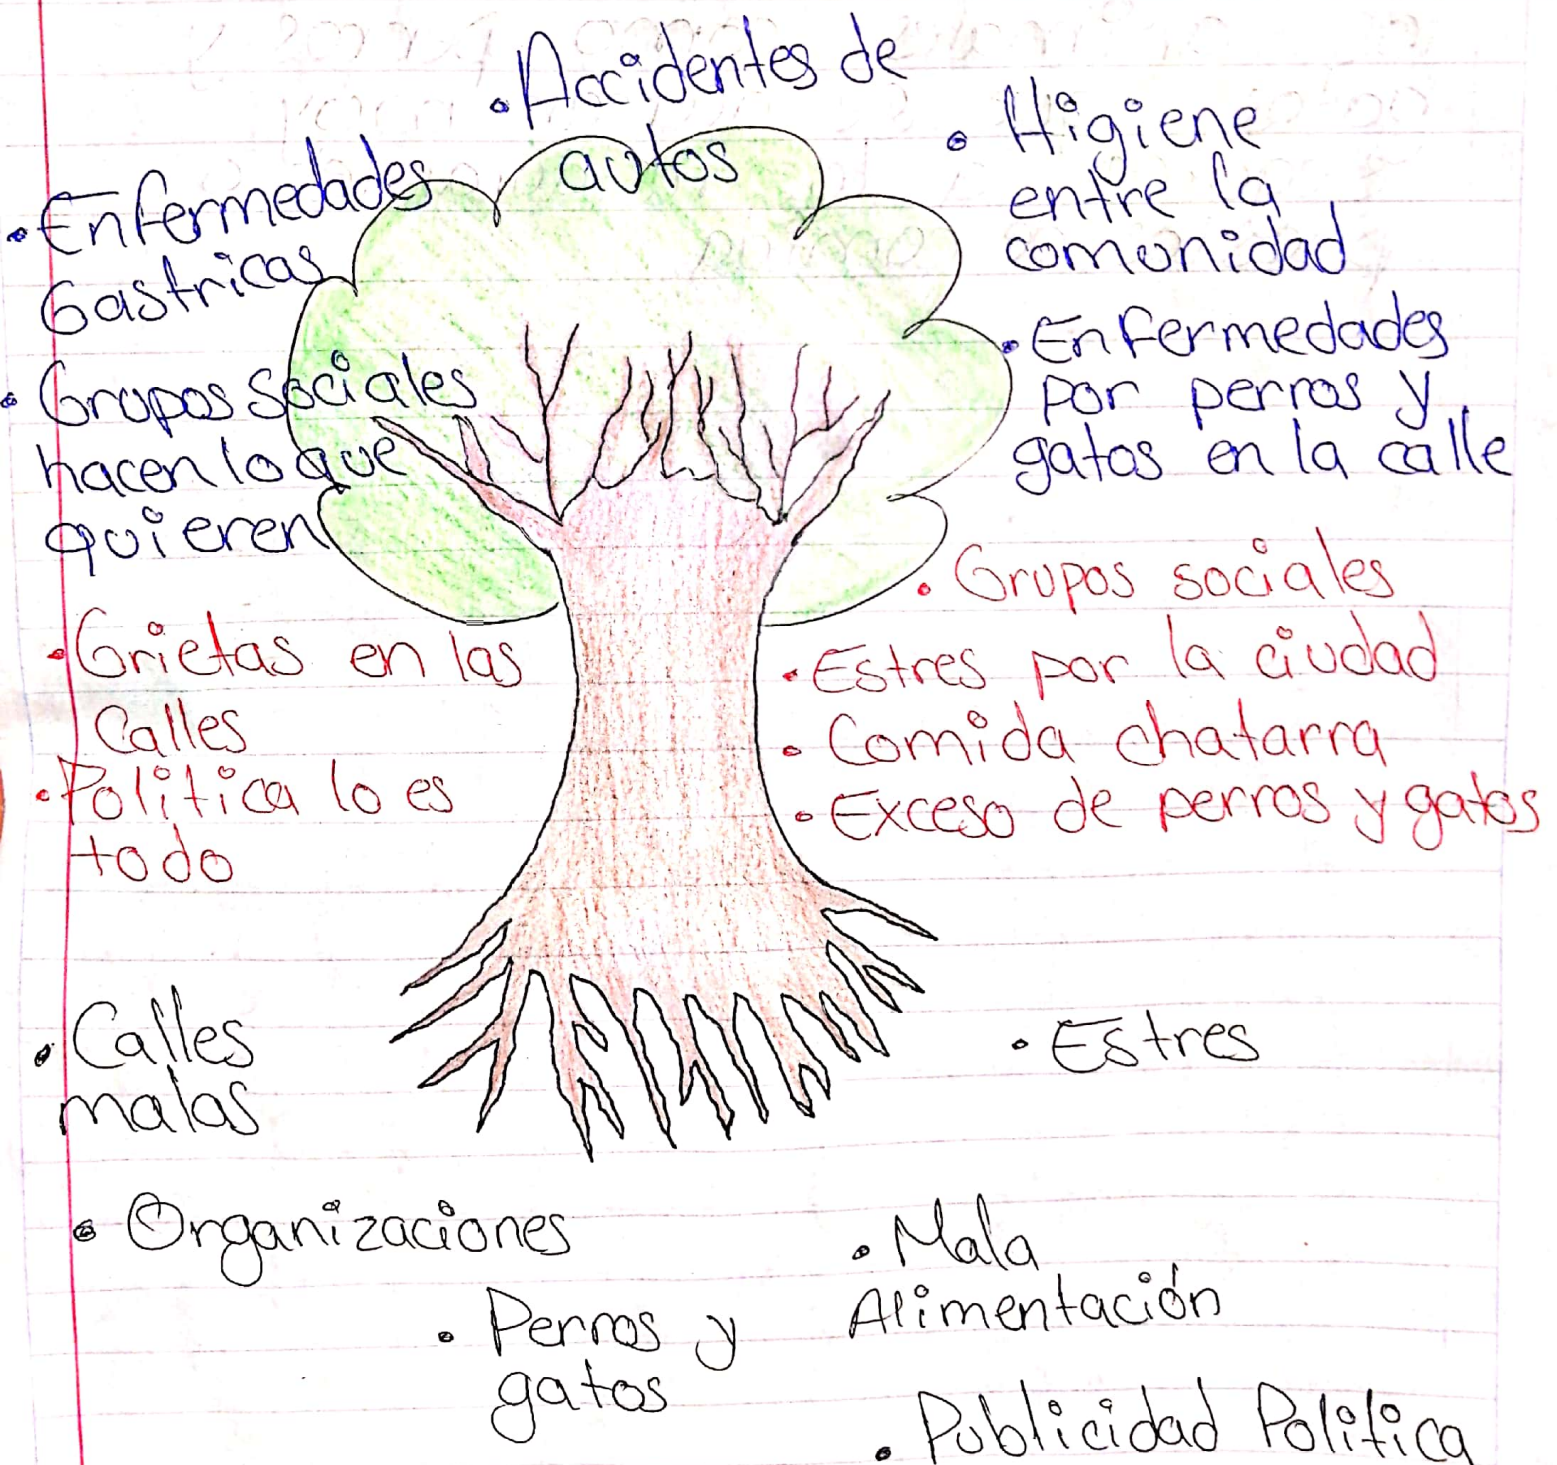 . Accidentes de
autos
. Enfermedades
Gastricas
. Grupos sociales
hacen lo que
quieren
. Higiene
entre la
comunidad
. Enfermedades
por perros y
gatos en la calle
. Grietas en las
Calles
. Politica lo es
todo
. Grupos sociales
. Estres por la ciudad
. Comida chatarra
. Exceso de perros y gatos
. Calles
malas
. Estres
. Organizaciones
. Perros y
gatos
. Mala
Alimentación
. Publicidad Politica